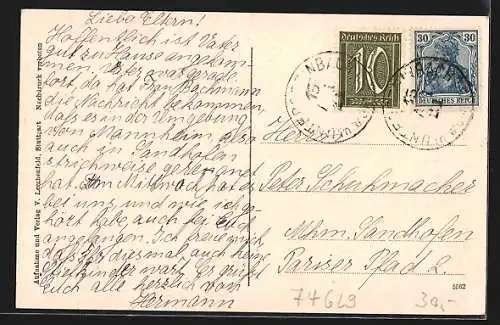 Liebe Eltern!
Hoffentlich ist Vater
gut zu Hause angekom-
men. Als er
fort, da hat Frau Bachmann
die Nachricht bekommen,
dass es in der Umgebung
von Mannheim also
auch in Sandhofen
strichweise geregnet
hat. Am Mittwoch hat es
bei uns, und wie ich ge-
hört habe auch bei Euch
angefangen. Ich freue mich,
dass er diesmal auch keine
war. Es grüßt
Euch alle herzlich Euer
Hermann
Aufnahme und Verlag V. Lerchenfeld, Stuttgart Nachdruck verboten
Deutsches Reich
10
30 30
DEUTSCHES REICH
Herrn
Peter Schuhmacher
Mhm. Sandhofen
Pariser Pfad 2.
5562
74629
30,-